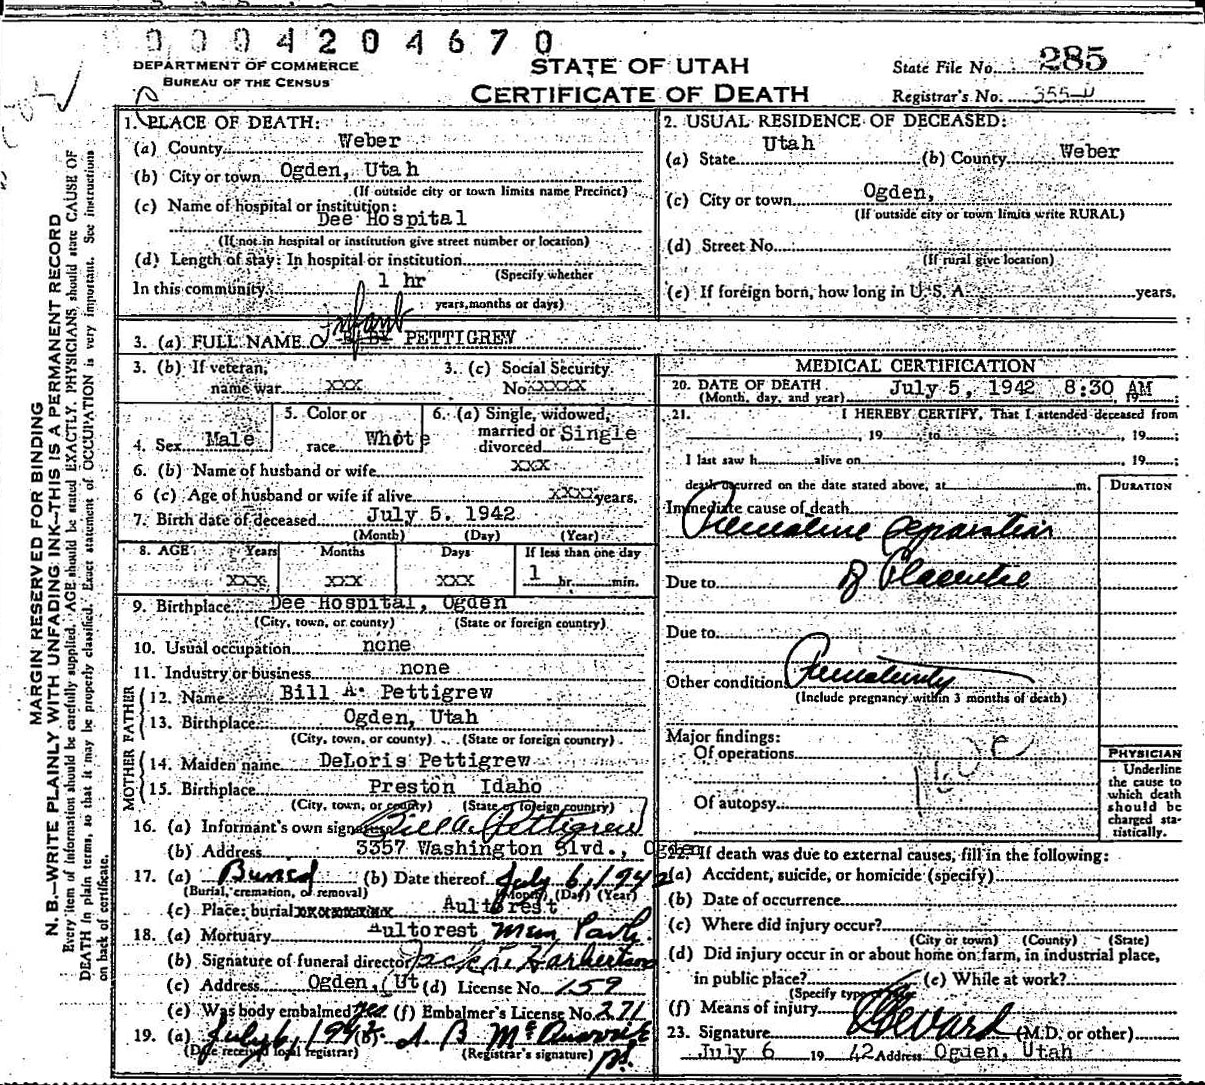 0 0 0 4 2 0 4 6 7 0
DEPARTMENT OF COMMERCE
BUREAU OF THE CENSUS
STATE OF UTAH
CERTIFICATE OF DEATH
State File No. 285
Registrar's No.
MARGIN RESERVED FOR BINDING
N. B.—WRITE PLAINLY WITH UNFADING INK—THIS IS A PERMANENT RECORD
Every item of information should be carefully supplied. AGE should be stated EXACTLY. PHYSICIANS should state CAUSE OF
DEATH in plain terms, so that it may be properly classified. Exact statement of OCCUPATION is very important. See instructions
on back of certificate.
1. PLACE OF DEATH:
(a) County Weber
(b) City or town Ogden, Utah
(If outside city or town limits name Precinct)
(c) Name of hospital or institution:
Dee Hospital
(If not in hospital or institution give street number or location)
(d) Length of stay: In hospital or institution
(Specify whether
In this community 1 hr
years, months or days)
2. USUAL RESIDENCE OF DECEASED:
(a) State Utah (b) County Weber
(c) City or town Ogden,
(If outside city or town limits write RURAL)
(d) Street No.
(If rural give location)
(e) If foreign born, how long in U. S. A. years.
3. (a) FULL NAME Infant PETTIGREW
3. (b) If veteran, 3. (c) Social Security
name war XXX No XXXX
4. Sex Male 5. Color or race Whote 6. (a) Single, widowed, married or divorced Single
6. (b) Name of husband or wife XXX
6 (c) Age of husband or wife if alive XXXX years.
7. Birth date of deceased July 5. 1942
(Month) (Day) (Year)
8. AGE Years Months Days If less than one day
XXX XXX XXX 1 hr. min.
9. Birthplace Dee Hospital, Ogden
(City, town, or county) (State or foreign country)
10. Usual occupation none
11. Industry or business none
FATHER
12. Name Bill A. Pettigrew
13. Birthplace Ogden, Utah
(City, town, or county) (State or foreign country)
MOTHER
14. Maiden name DeLoris Pettigrew
15. Birthplace Preston Idaho
(City, town, or county) (State or foreign country)
16. (a) Informant's own signature Bill A. Pettigrew
(b) Address 3357 Washington Blvd., Ogden
17. (a) Buried (b) Date thereof July 6, 1942
(Burial, cremation, or removal) (Month) (Day) (Year)
(c) Place: burial Aultorest
18. (a) Mortuary Aultorest Mem Park.
(b) Signature of funeral director Jack Harbertson
(c) Address Ogden, Ut (d) License No. 159
(e) Was body embalmed yes (f) Embalmer's License No. 271
19. (a) July 6, 1942 (b)
(Date received local registrar) (Registrar's signature)
MEDICAL CERTIFICATION
20. DATE OF DEATH July 5, 1942 8:30 AM
(Month, day, and year) 19 ;
21. I HEREBY CERTIFY, That I attended deceased from
, 19 to , 19 ;
I last saw h alive on , 19 ;
death occurred on the date stated above, at m. DURATION
Immediate cause of death
Premature separation
Due to of Placentae
Due to
Other conditions Prematurity
(Include pregnancy within 3 months of death)
Major findings:
Of operations
Of autopsy
PHYSICIAN
Underline
the cause to
which death
should be
charged sta-
tistically.
22. If death was due to external causes, fill in the following:
(a) Accident, suicide, or homicide (specify)
(b) Date of occurrence
(c) Where did injury occur?
(City or town) (County) (State)
(d) Did injury occur in or about home on farm, in industrial place,
in public place? (e) While at work?
(Specify type
(f) Means of injury
23. Signature (M.D. or other)
July 6 19 42 Address Ogden, Utah